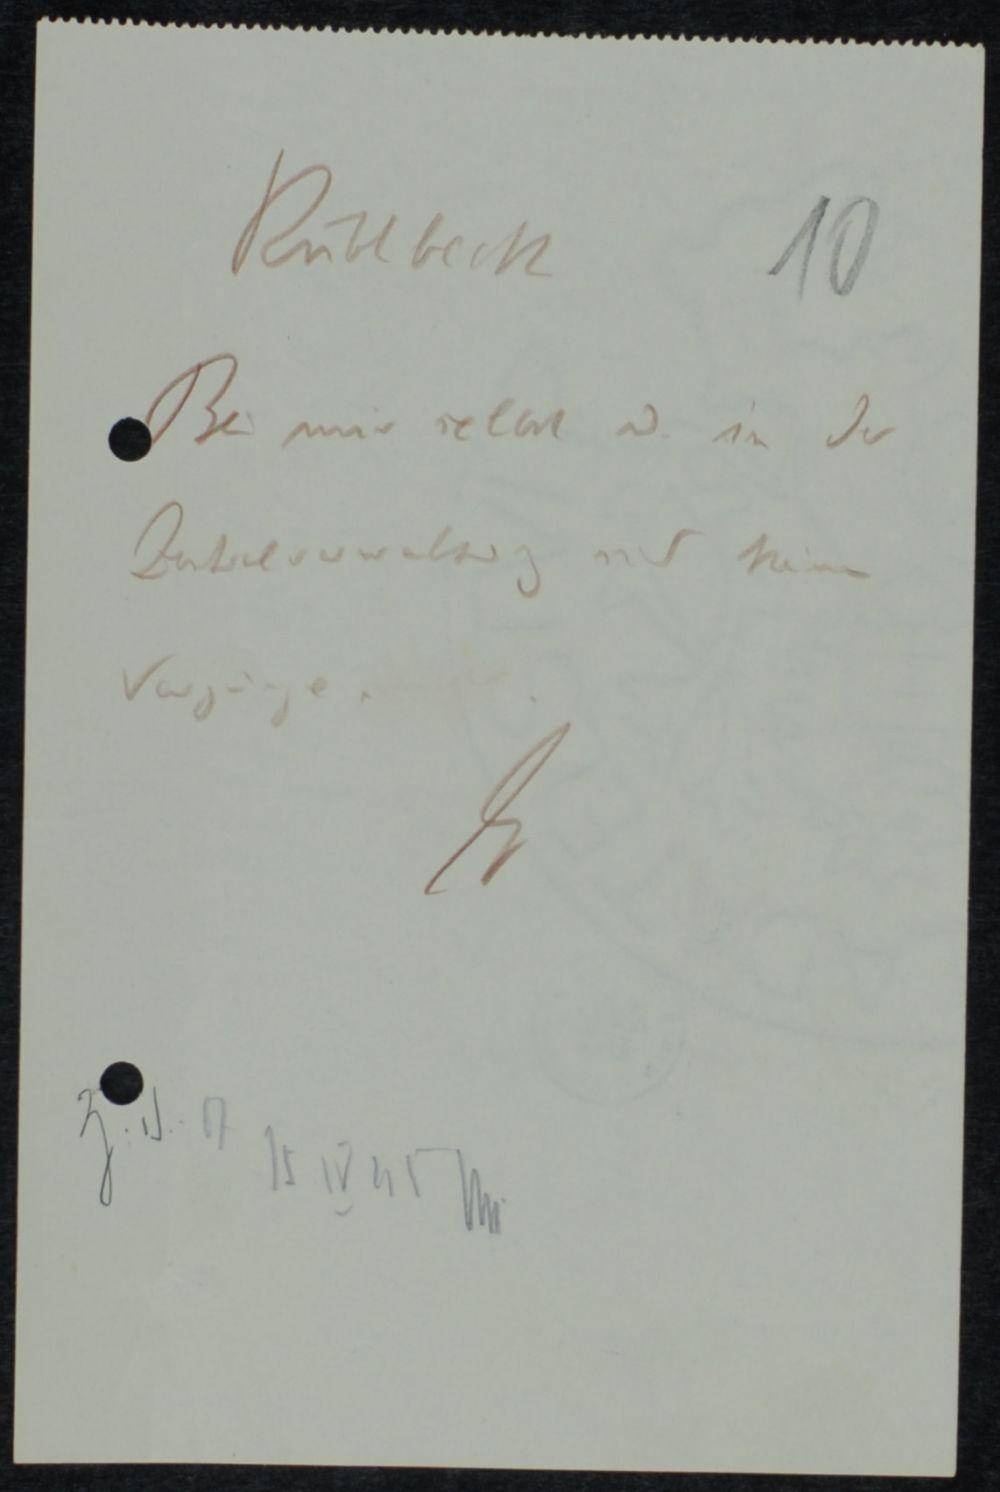 Rühlbeck 10
Bei mir selbst u. in der
Zentralverwaltung sind keine
Vorgänge
15 IV 45